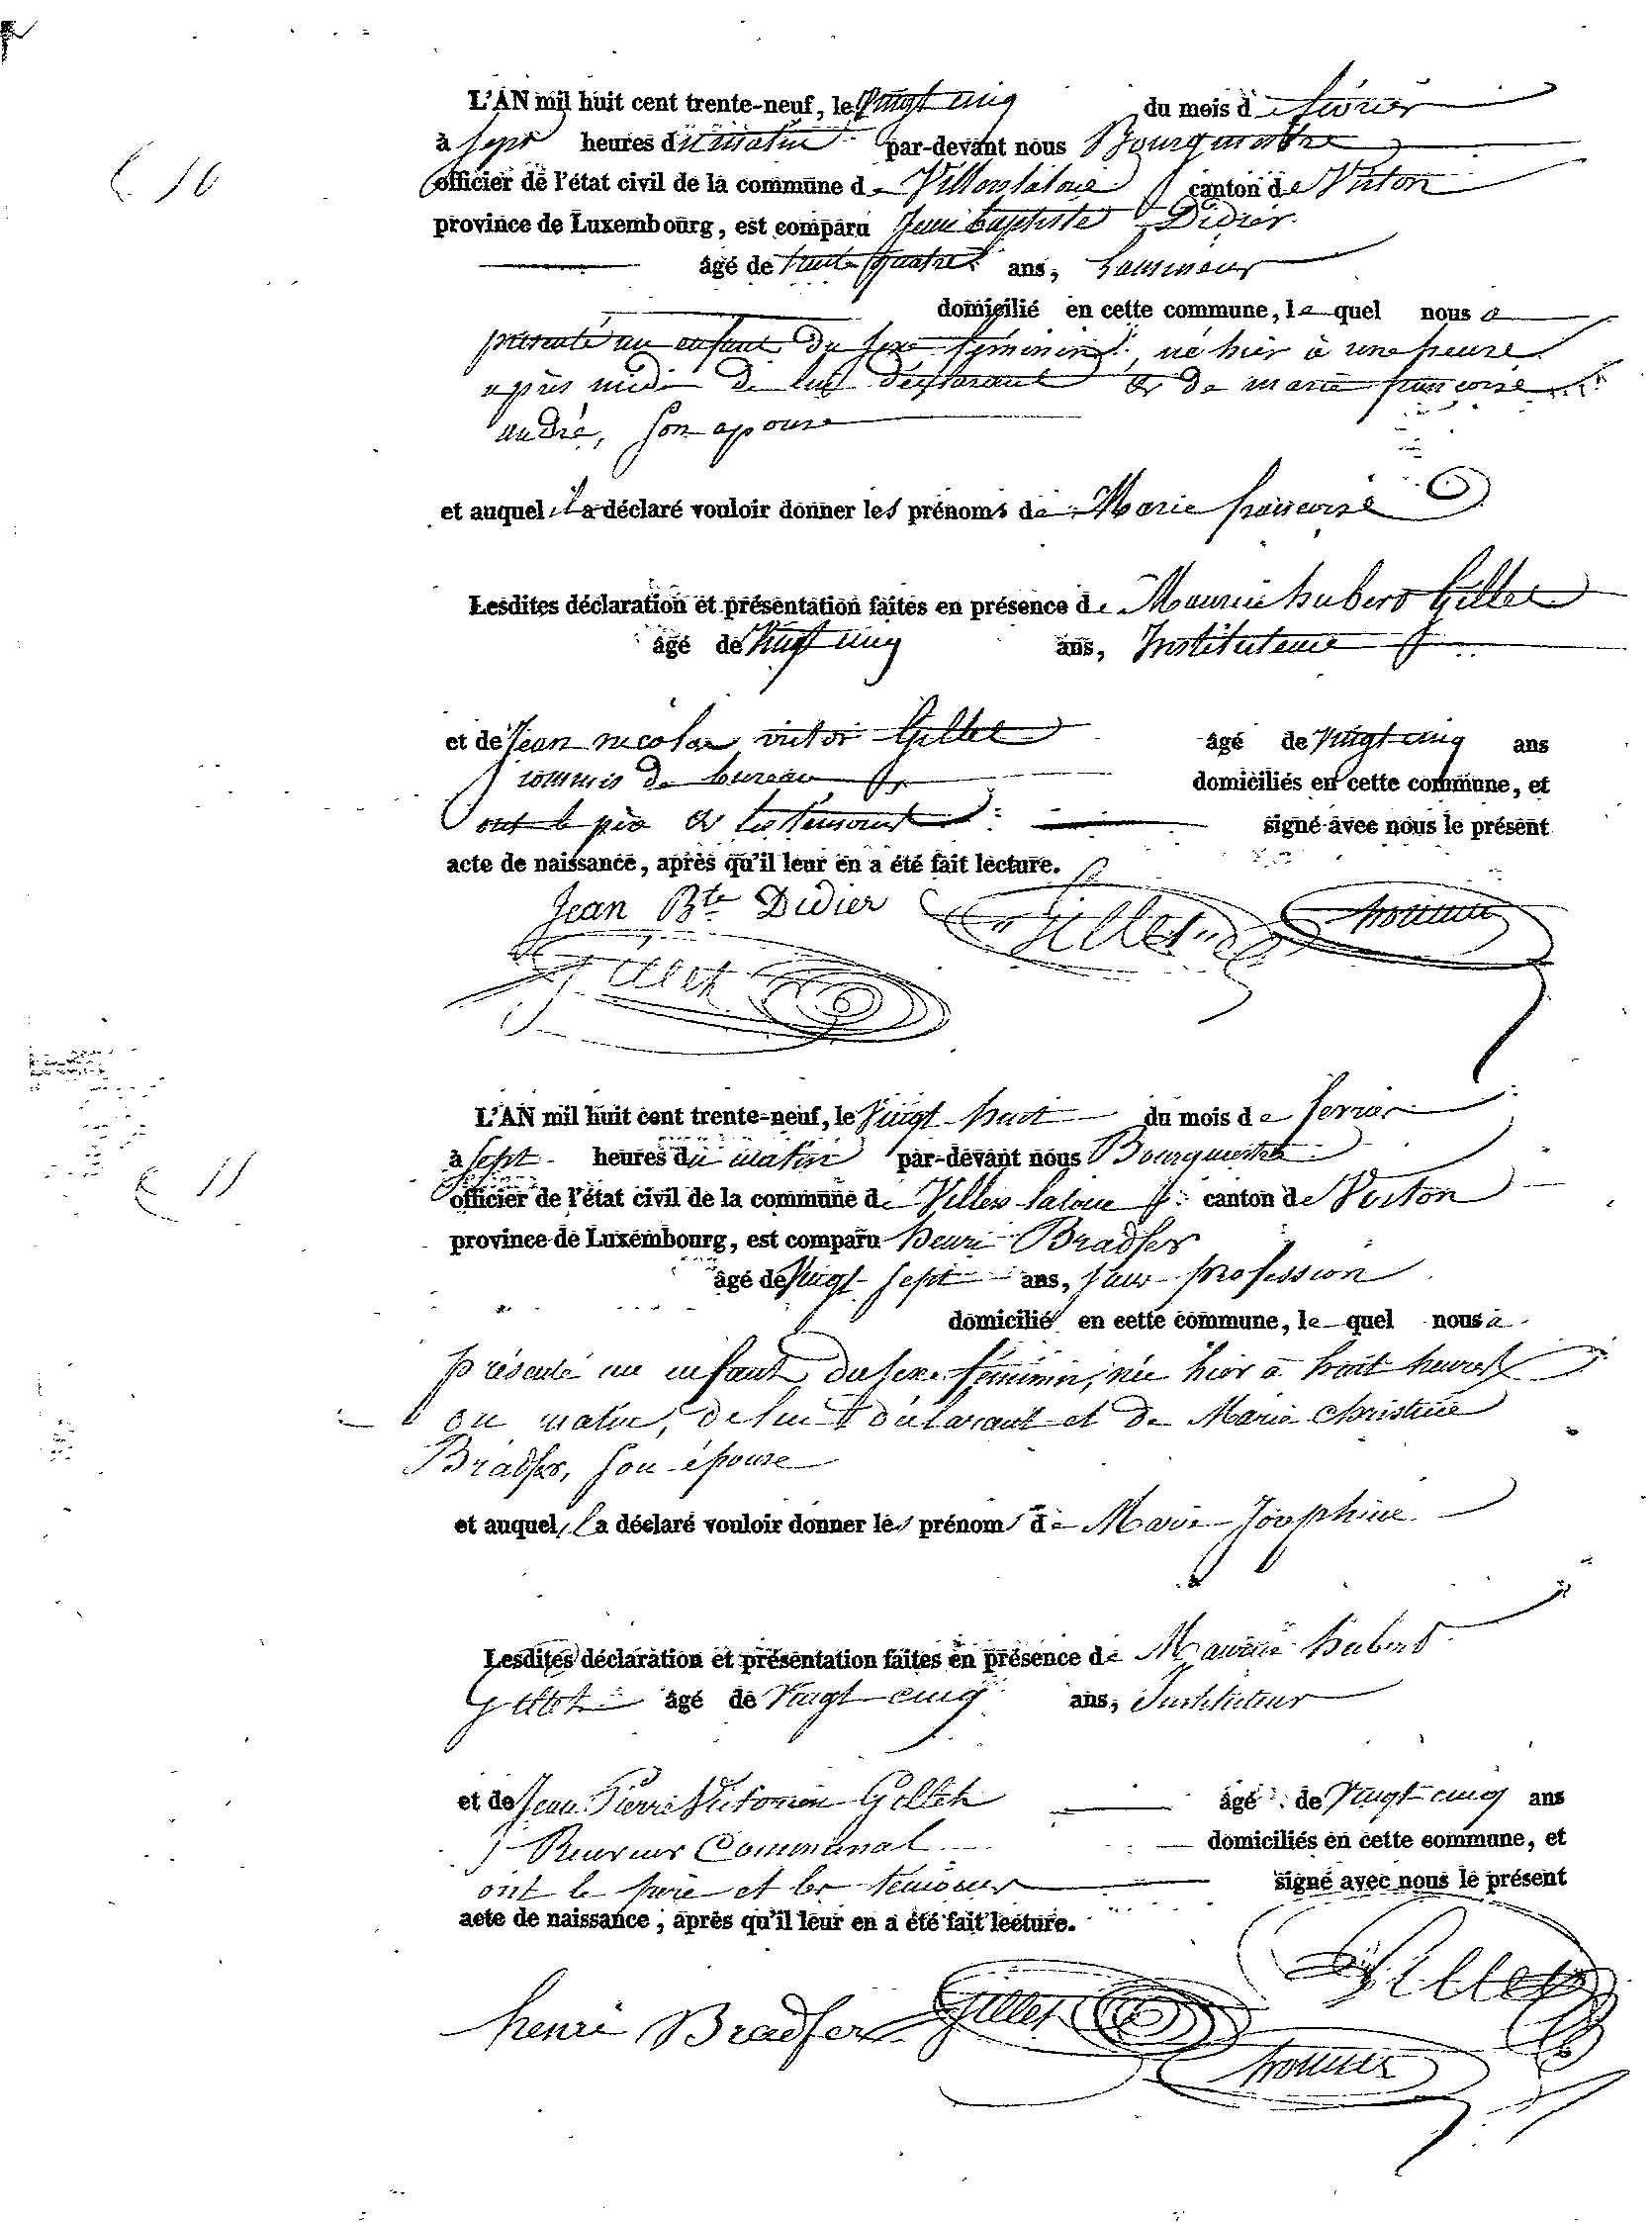 10
L'AN mil huit cent trente-neuf, le Vingt cinq du mois de février
à sept heures du matin par-devant nous Bourgmestre
officier de l'état civil de la commune de Villerslaloue canton de Virton
province de Luxembourg, est comparu Jean baptiste Didier
âgé de trente quatre ans,
domicilié en cette commune, le quel nous a
présenté un enfant du sexe féminin, né hier à une heure
après midi de lui déclarant & de marie françoise
andré, son epouse
et auquel il a déclaré vouloir donner les prénoms de Marie françoise
Lesdites déclaration et présentation faites en présence de Maurice hubert Gillet
âgé de Vingt cinq ans, Instituteur
et de Jean nicolas victor Gillet âgé de vingt cinq ans
commis de bureau domiciliés en cette commune, et
ont le père & les témoins signé avec nous le présent
acte de naissance, après qu'il leur en a été fait lecture.
Jean Bte Didier Gillet
Gillet
11
L'AN mil huit cent trente-neuf, le Vingt huit du mois de fevrier
à sept heures du matin par-devant nous Bourgmestre
officier de l'état civil de la commune de Villers laloue canton de Virton
province de Luxembourg, est comparu henri Bradfer
âgé de Vingt sept ans, sans profession
domicilié en cette commune, le quel nous a
présenté un enfant du sexe féminin, née hier à huit heures
du matin, de lui déclarant et de Marie Christine
Bradfer, son épouse
et auquel il a déclaré vouloir donner les prénoms de Marie Joséphine
Lesdites déclaration et présentation faites en présence de Maurice hubert
Gillet âgé de Vingt cinq ans, Instituteur
et de Jean Pierre Victorien Gillet âgé de Vingt cinq ans
Receveur Communal domiciliés en cette commune, et
ont le père et les témoins signé avec nous le présent
acte de naissance, après qu'il leur en a été fait lecture.
Gillet
henri Bradfer Gillet